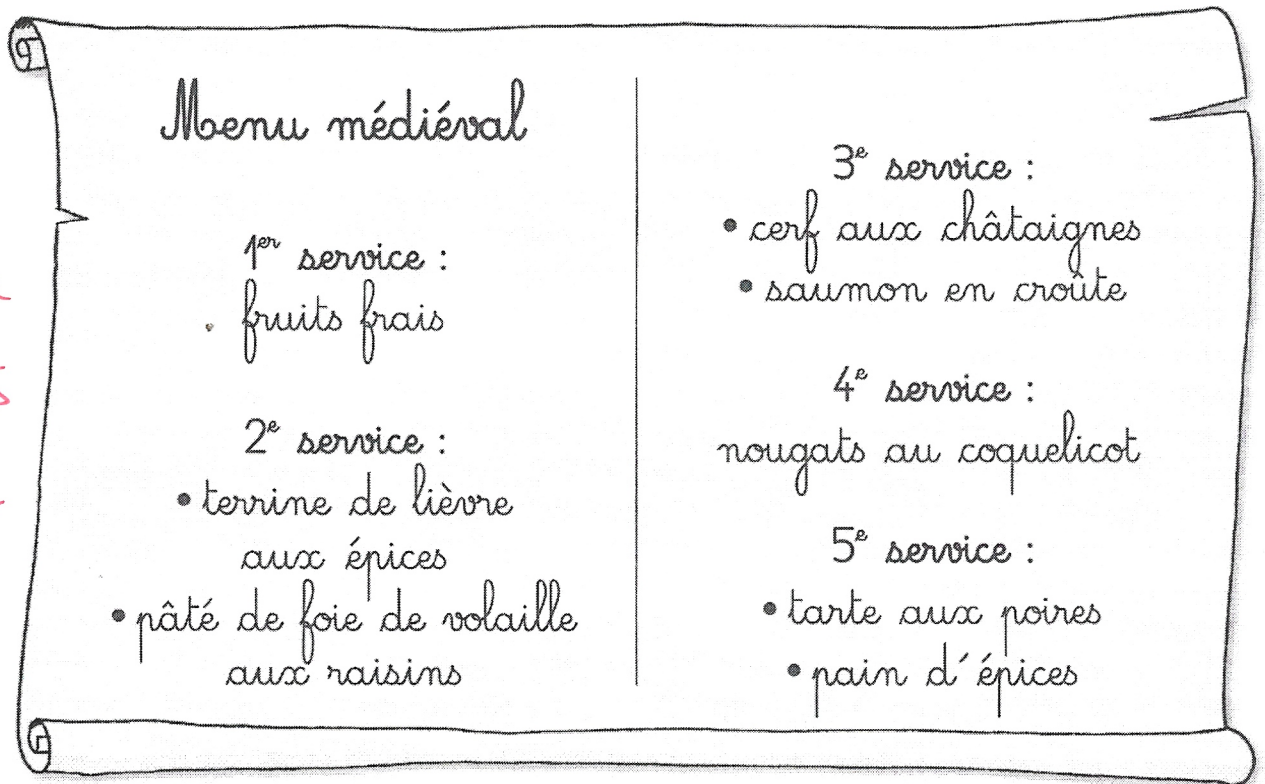 Menu médiéval
1er service :
. fruits frais
2e service :
• terrine de lièvre
aux épices
• pâté de foie de volaille
aux raisins
3e service :
• cerf aux châtaignes
• saumon en croûte
4e service :
nougats au coquelicot
5e service :
• tarte aux poires
• pain d'épices